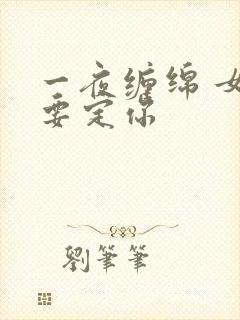 一夜缠绵 女
要定你
劉筆筆